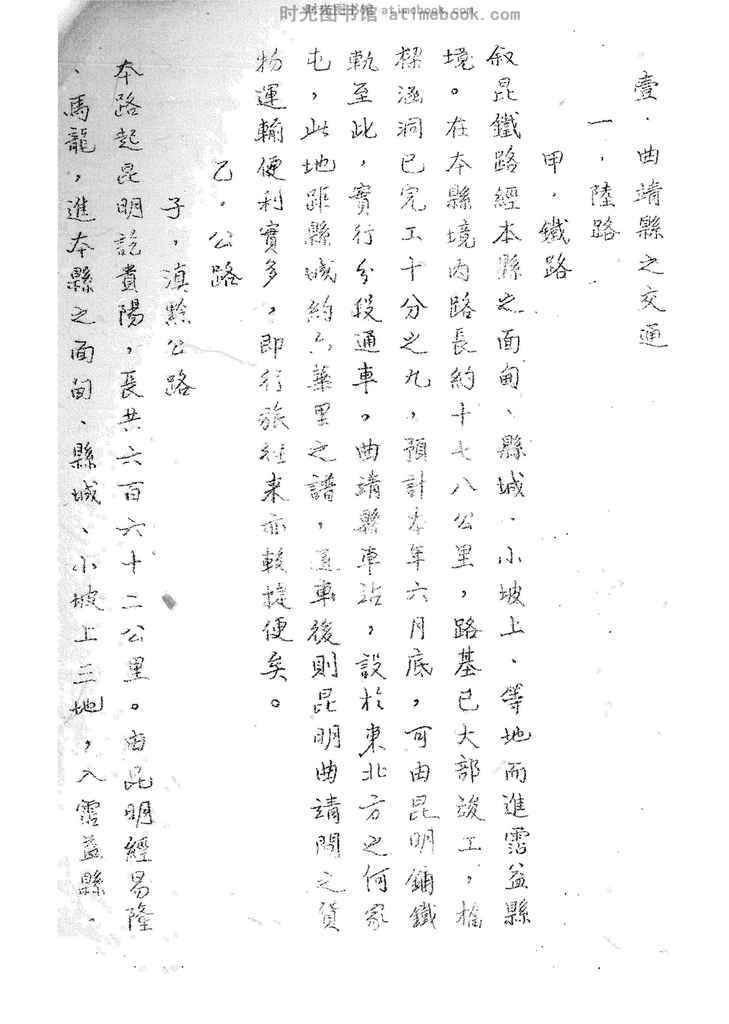 时光图书馆 atimebook.com
时光图书馆 atimebook.com
壹．曲靖縣之交通
一，陸路
甲，鐵路
叙昆鐵路經本縣之面甸、縣城、小坡上、等地而進霑益縣
境。在本縣境内路長約十七八公里，路基已大部竣工，橋
樑涵洞已完工十分之九，預計本年六月底，可由昆明鋪鐵
軌至此，實行分段通車。曲靖縣車站，設於東北方之何家
屯，此地距縣城約六華里之譜，通車後則昆明曲靖間之貨
物運輸便利實多，即行旅往來亦較捷便矣。
乙，公路
子，滇黔公路
本路起昆明訖貴陽，長共六百六十二公里。由昆明經易隆
、馬龍，進本縣之面甸、縣城、小坡上三地，入霑益縣，